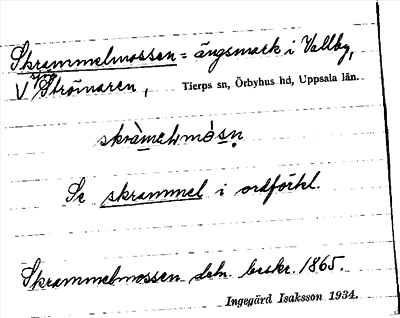 Skrammelmossen = ängsmark i Vallby,
V Strömaren, Tierps sn, Örbyhus hd, Uppsala län.
Se skrammel i ordförtel.
Skrammelmossen deln. beskr. 1865.
Ingegärd Isaksson 1934.